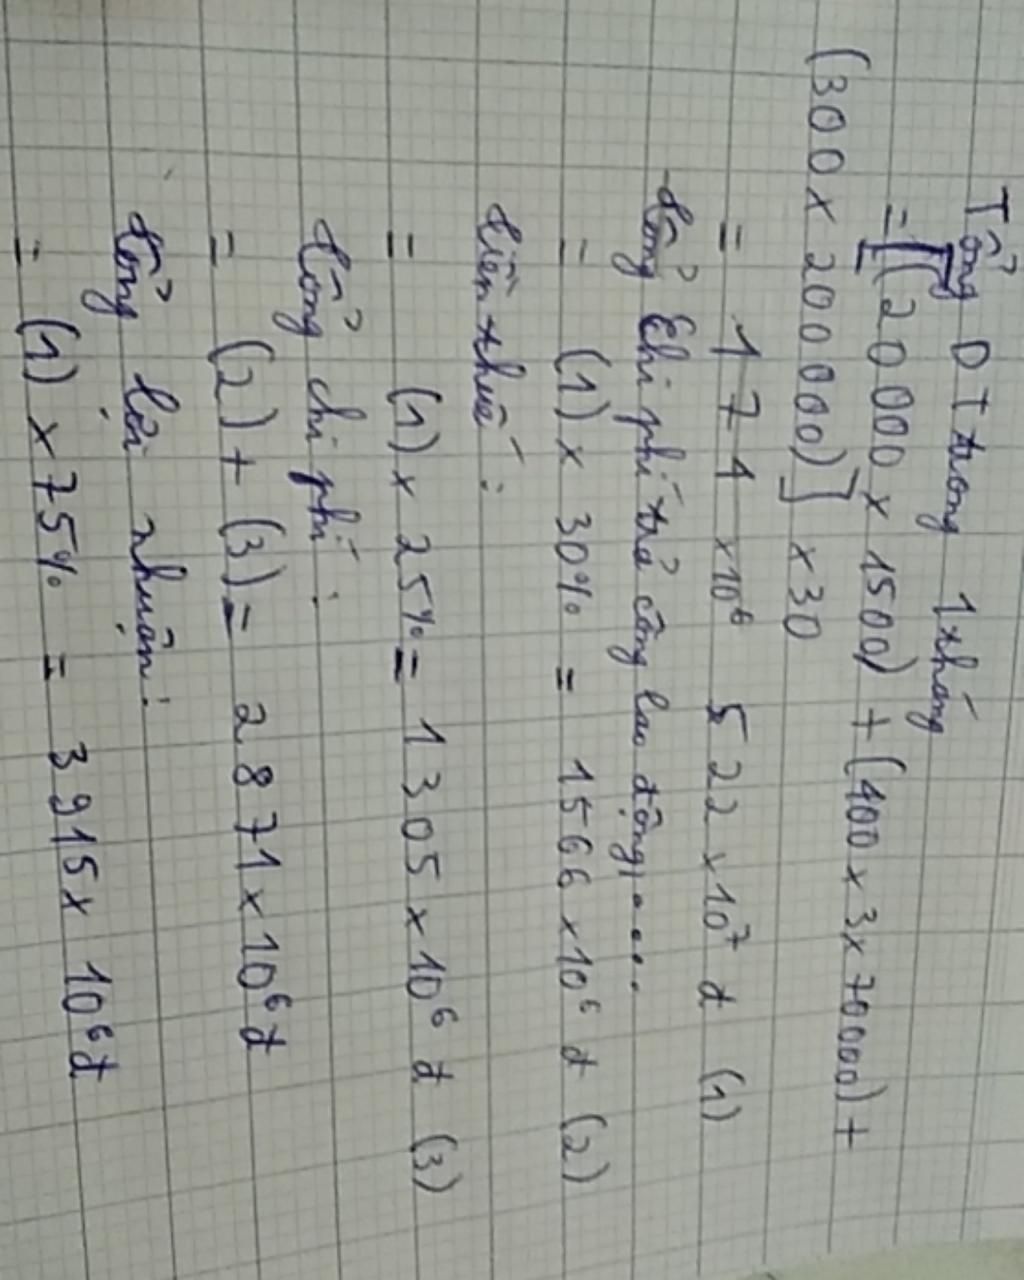 Tổng DT trong 1 tháng
= [(20000 x 1500) + (400 x 3 x 70000) +
(300 x 200000)] x 30
= 174 x10⁶ 522 x 10⁷ đ (1)
tổng chi phí trả công lao động,....
= (1) x 30% = 1566 x10⁶ đ (2)
tiền thuế :
= (1) x 25% = 1305 x 10⁶ đ (3)
tổng chi phí :
= (2) + (3) = 2871 x 10⁶ đ
tổng lợi nhuận :
= (1) x 75% = 3915 x 10⁶ đ